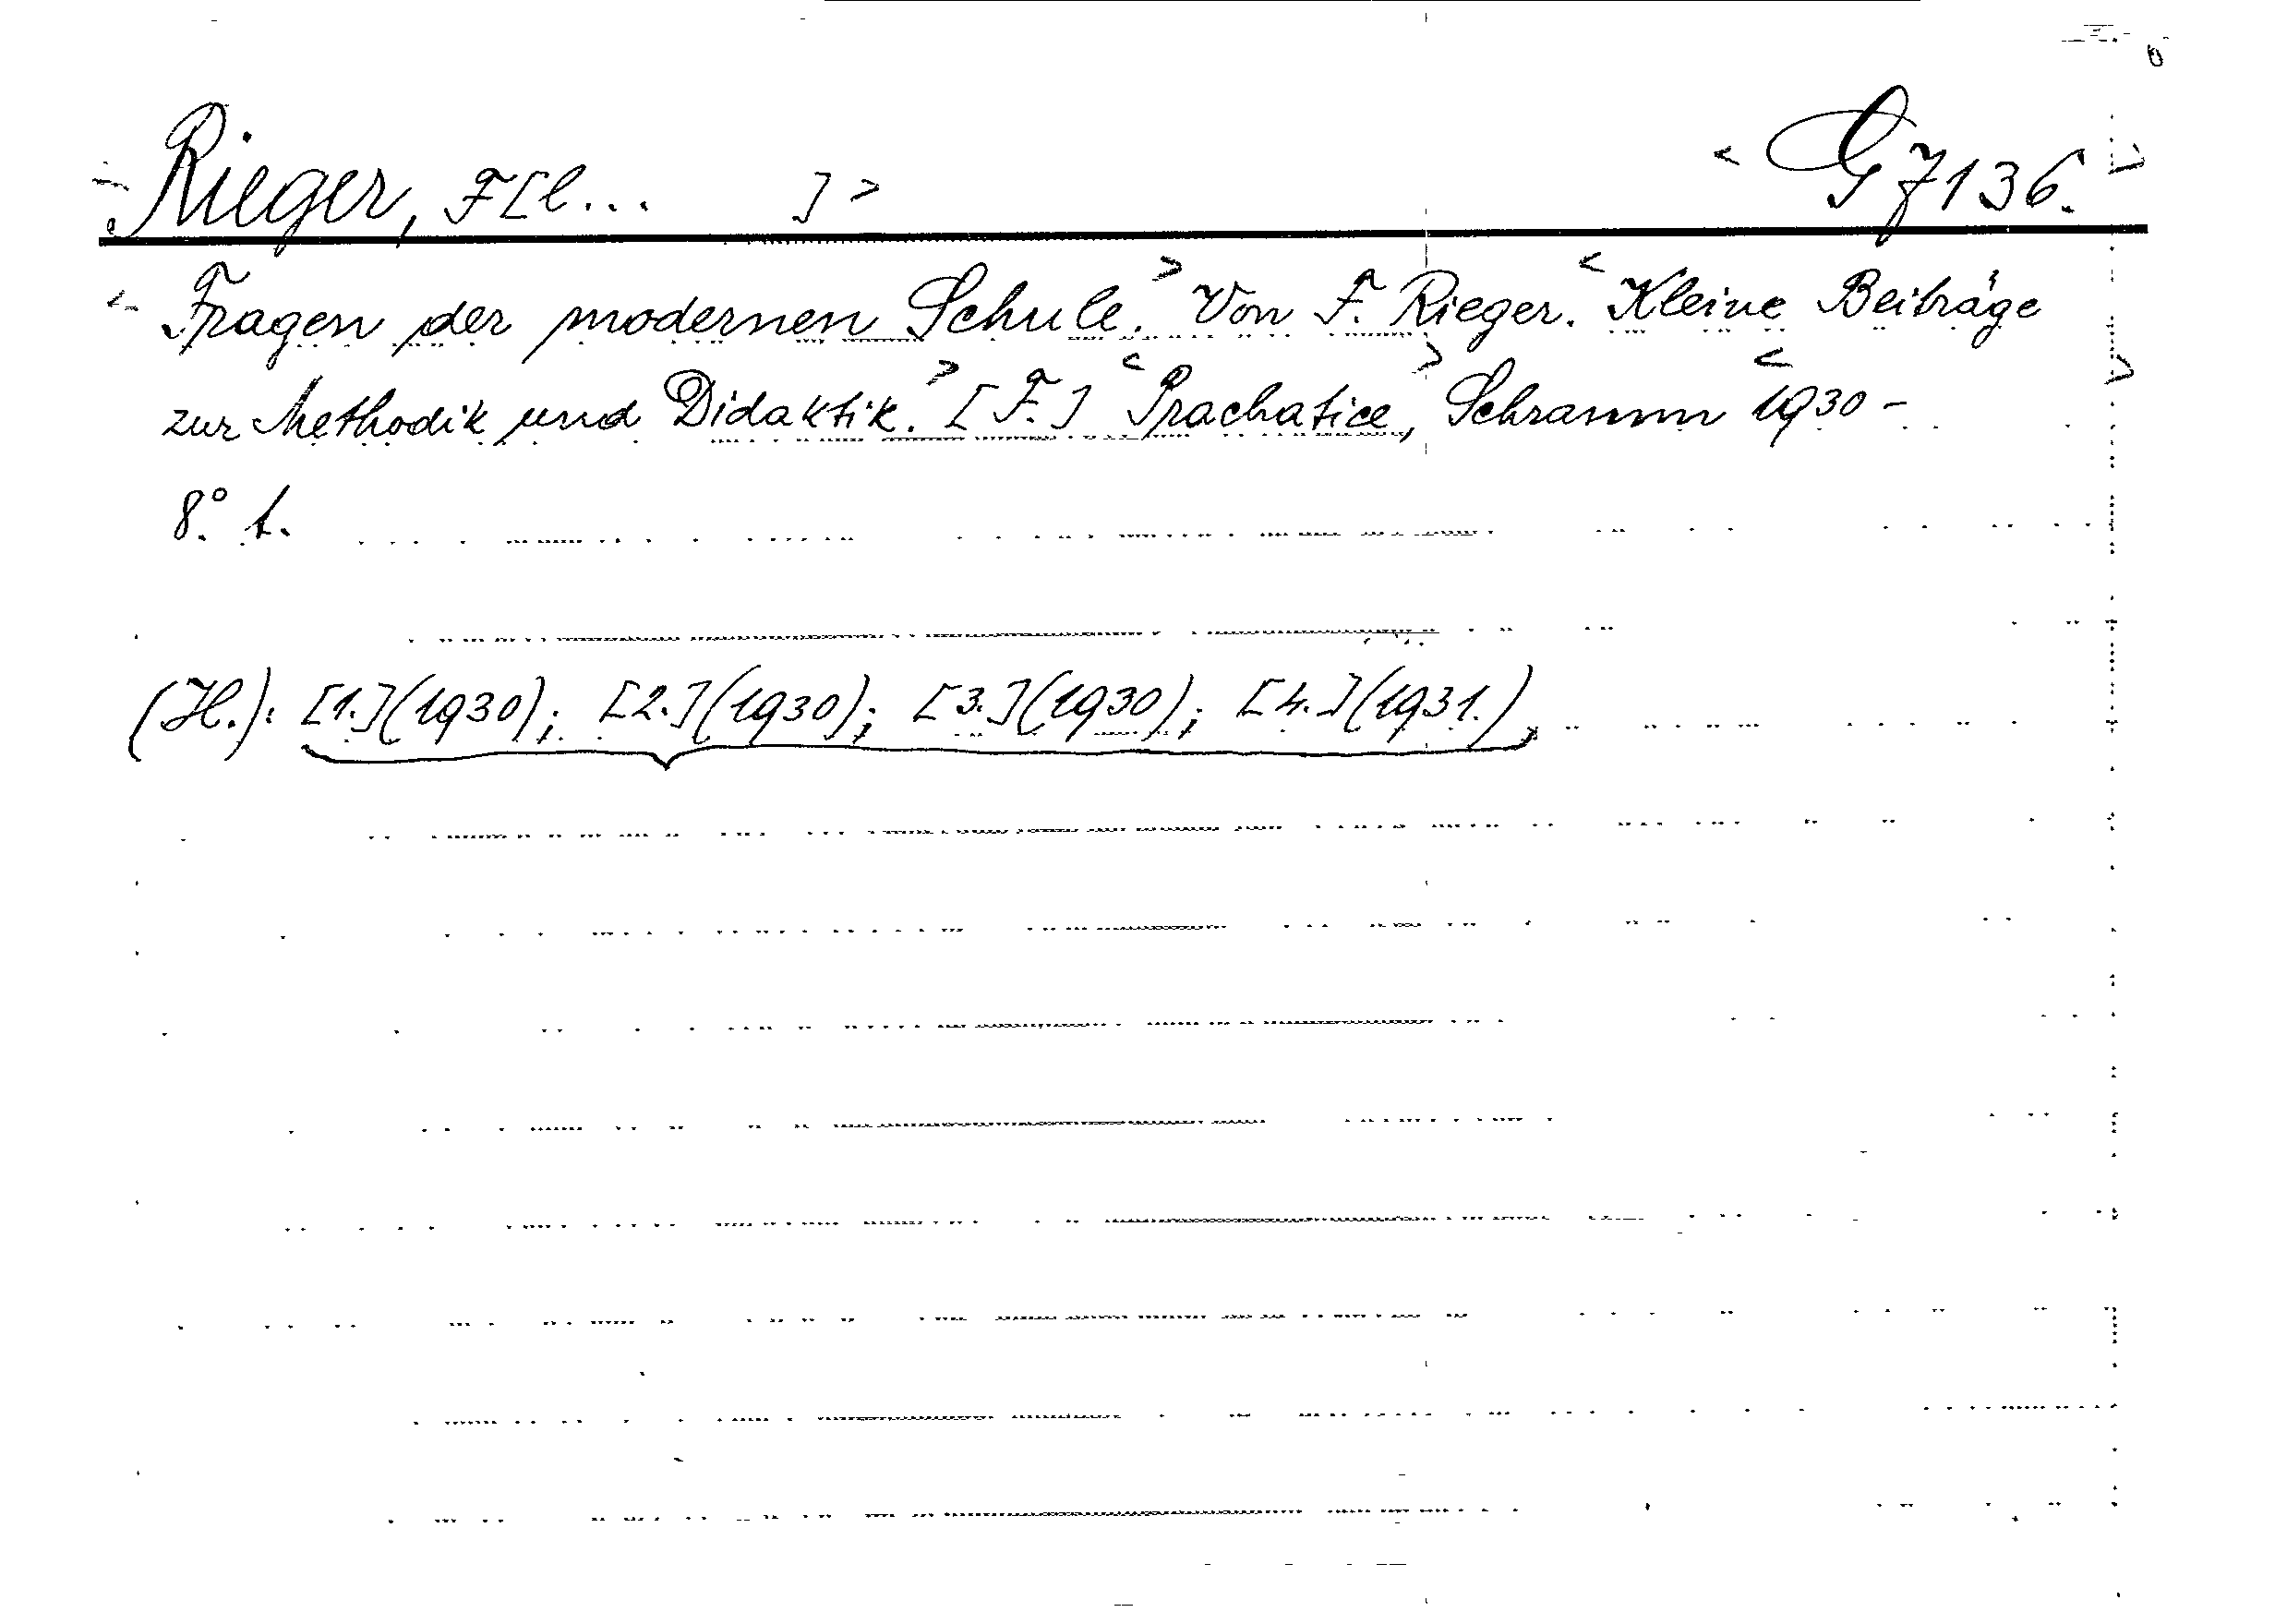 <Rieger, F[l... ]> <G 7136.>
<Fragen der modernen Schule.> Von F. Rieger. <Kleine Beiträge
zur Methodik und Didaktik.> [F.] <Prachatice,> Schramm <1930 - >
8°. t.
(H.): [1.](1930); [2.](1930); [3.](1930); [4.](1931.)